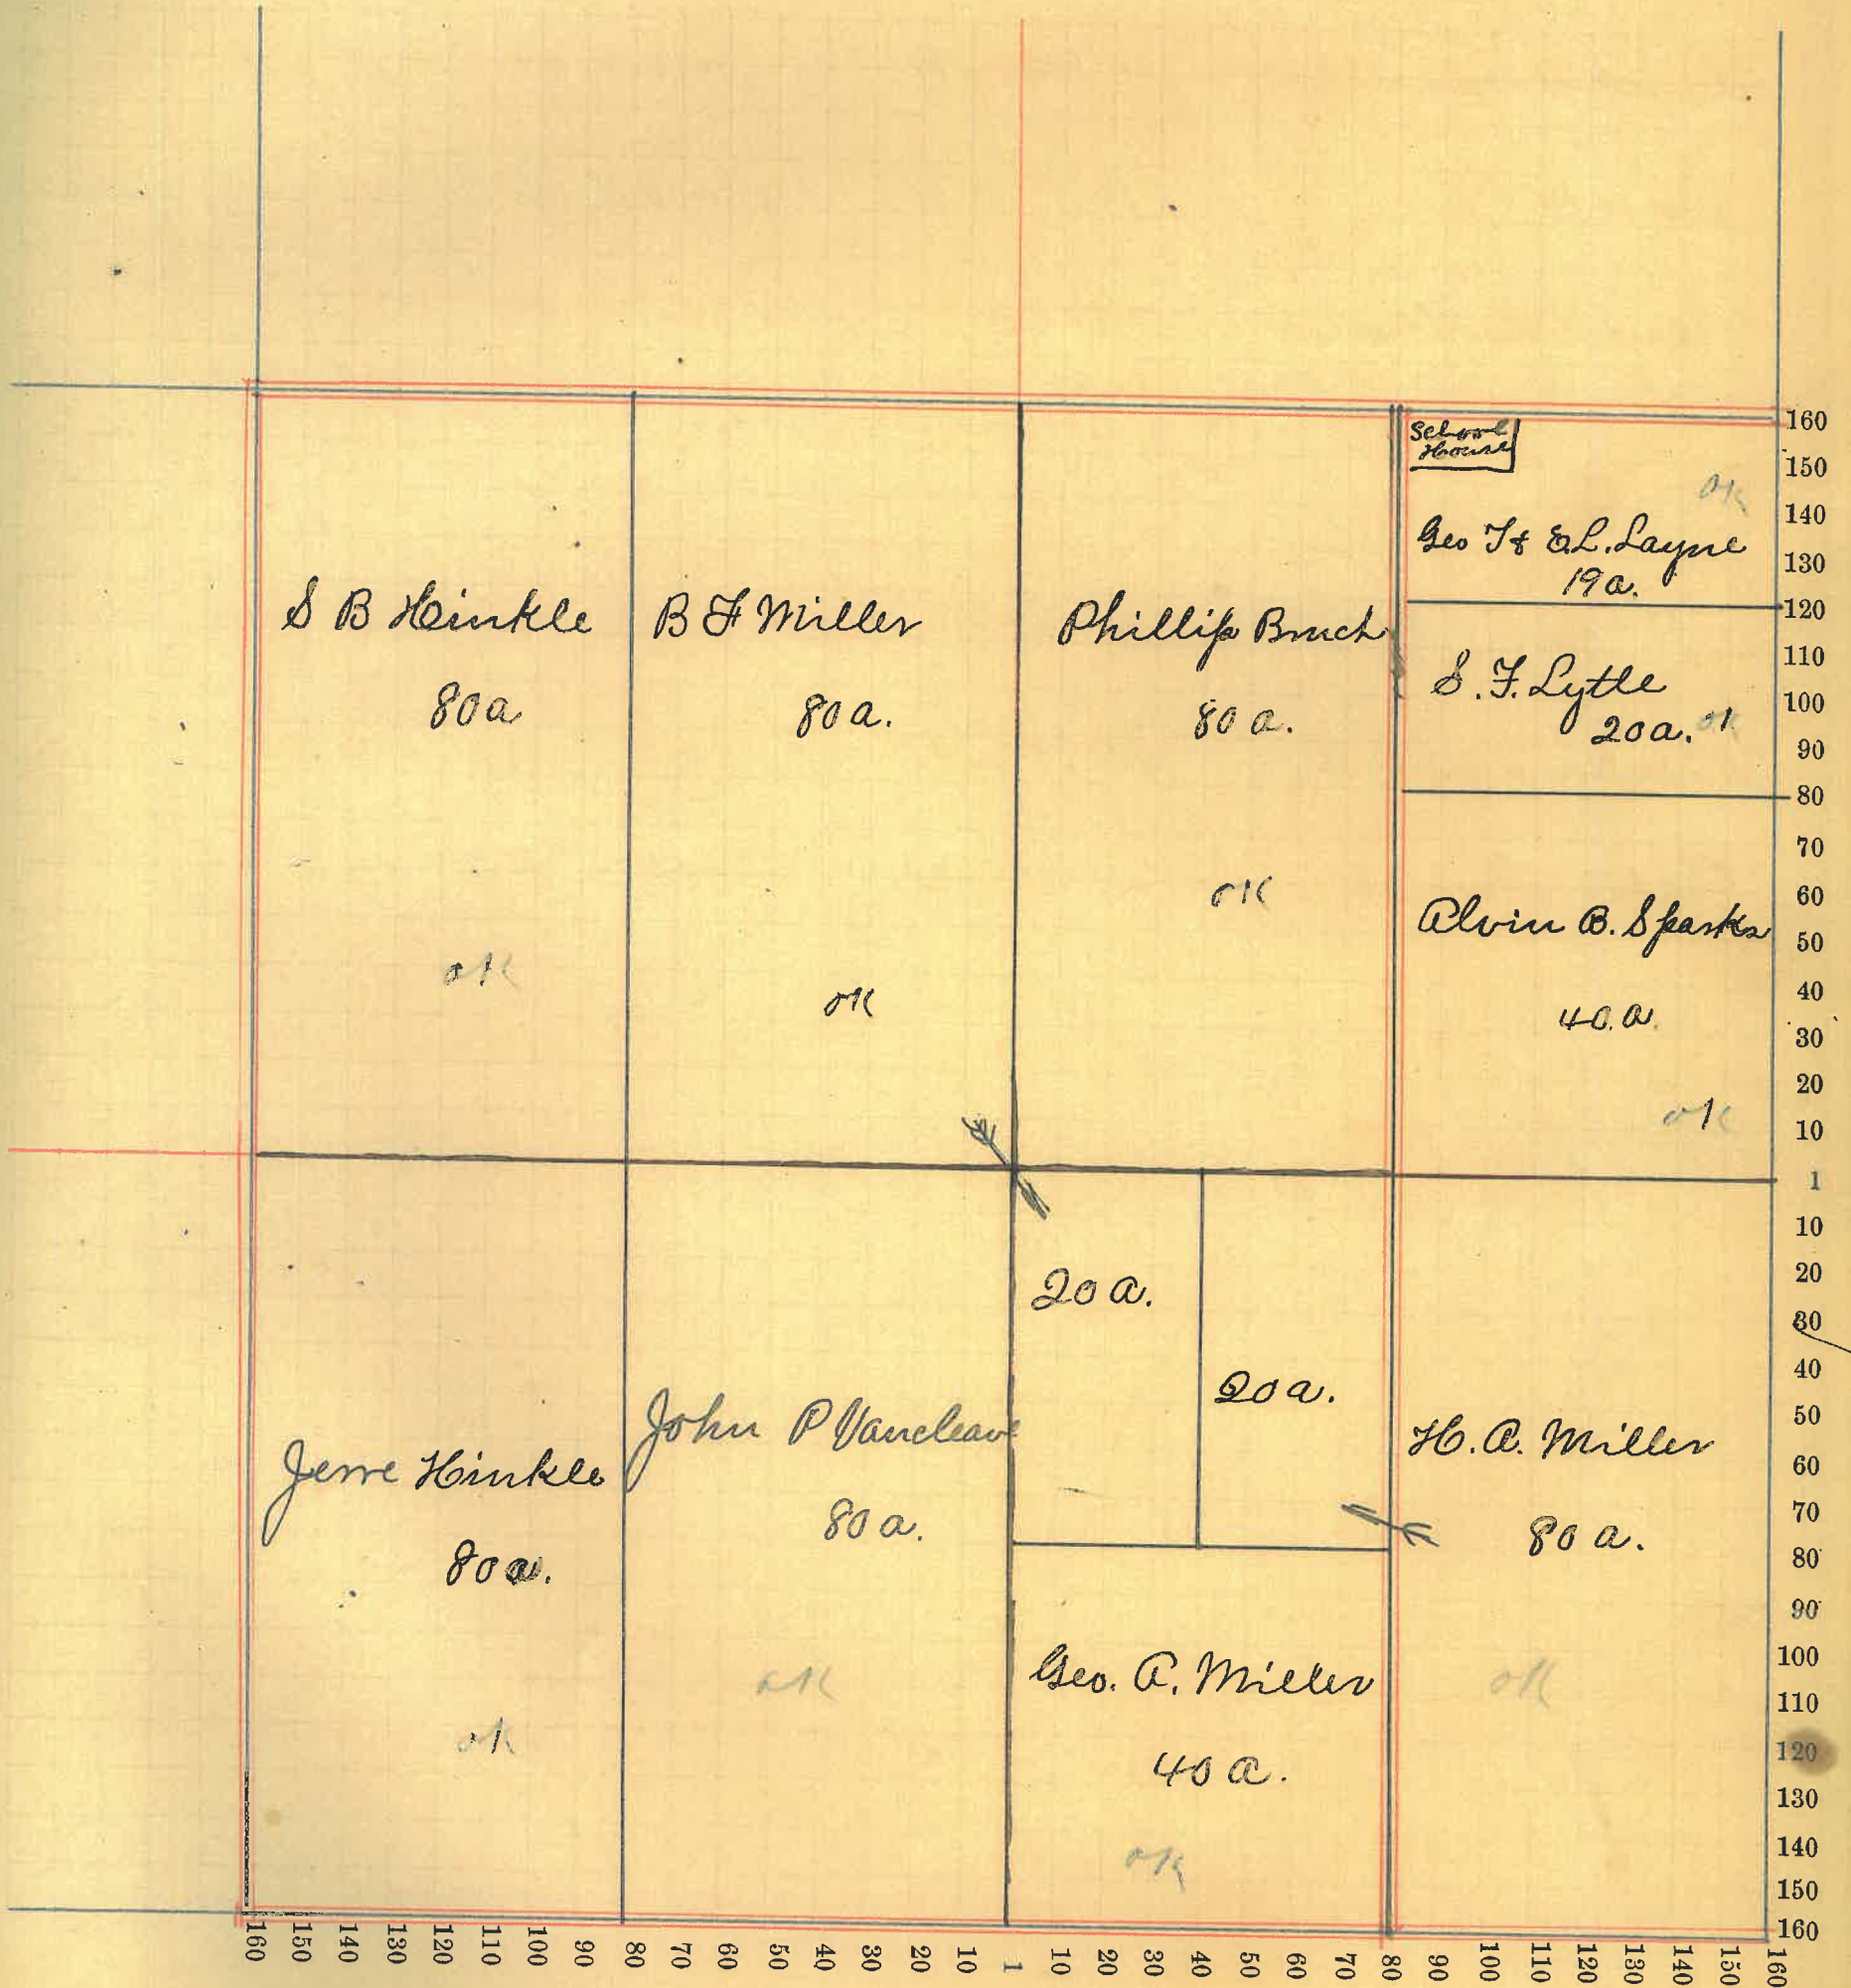 School
House
OK
Geo T & E.L. Layne
19a.
S B Hinkle
80a
OK
B F Miller
80a.
OK
Phillip Bruch
80 a.
OK
S. F. Lytle
20a. OK
Alvin B. Sparks
40. a.
OK
Jerre Hinkle
80a.
OK
John P Vancleave
80 a.
OK
20 a.
20 a.
Geo. A. Miller
40 a.
OK
H. A. Miller
80 a.
OK
160
150
140
130
120
110
100
90
80
70
60
50
40
30
20
10
1
10
20
30
40
50
60
70
80
90
100
110
120
130
140
150
160
160 150 140 130 120 110 100 90 80 70 60 50 40 30 20 10 1 10 20 30 40 50 60 70 80 90 100 110 120 130 140 150 160